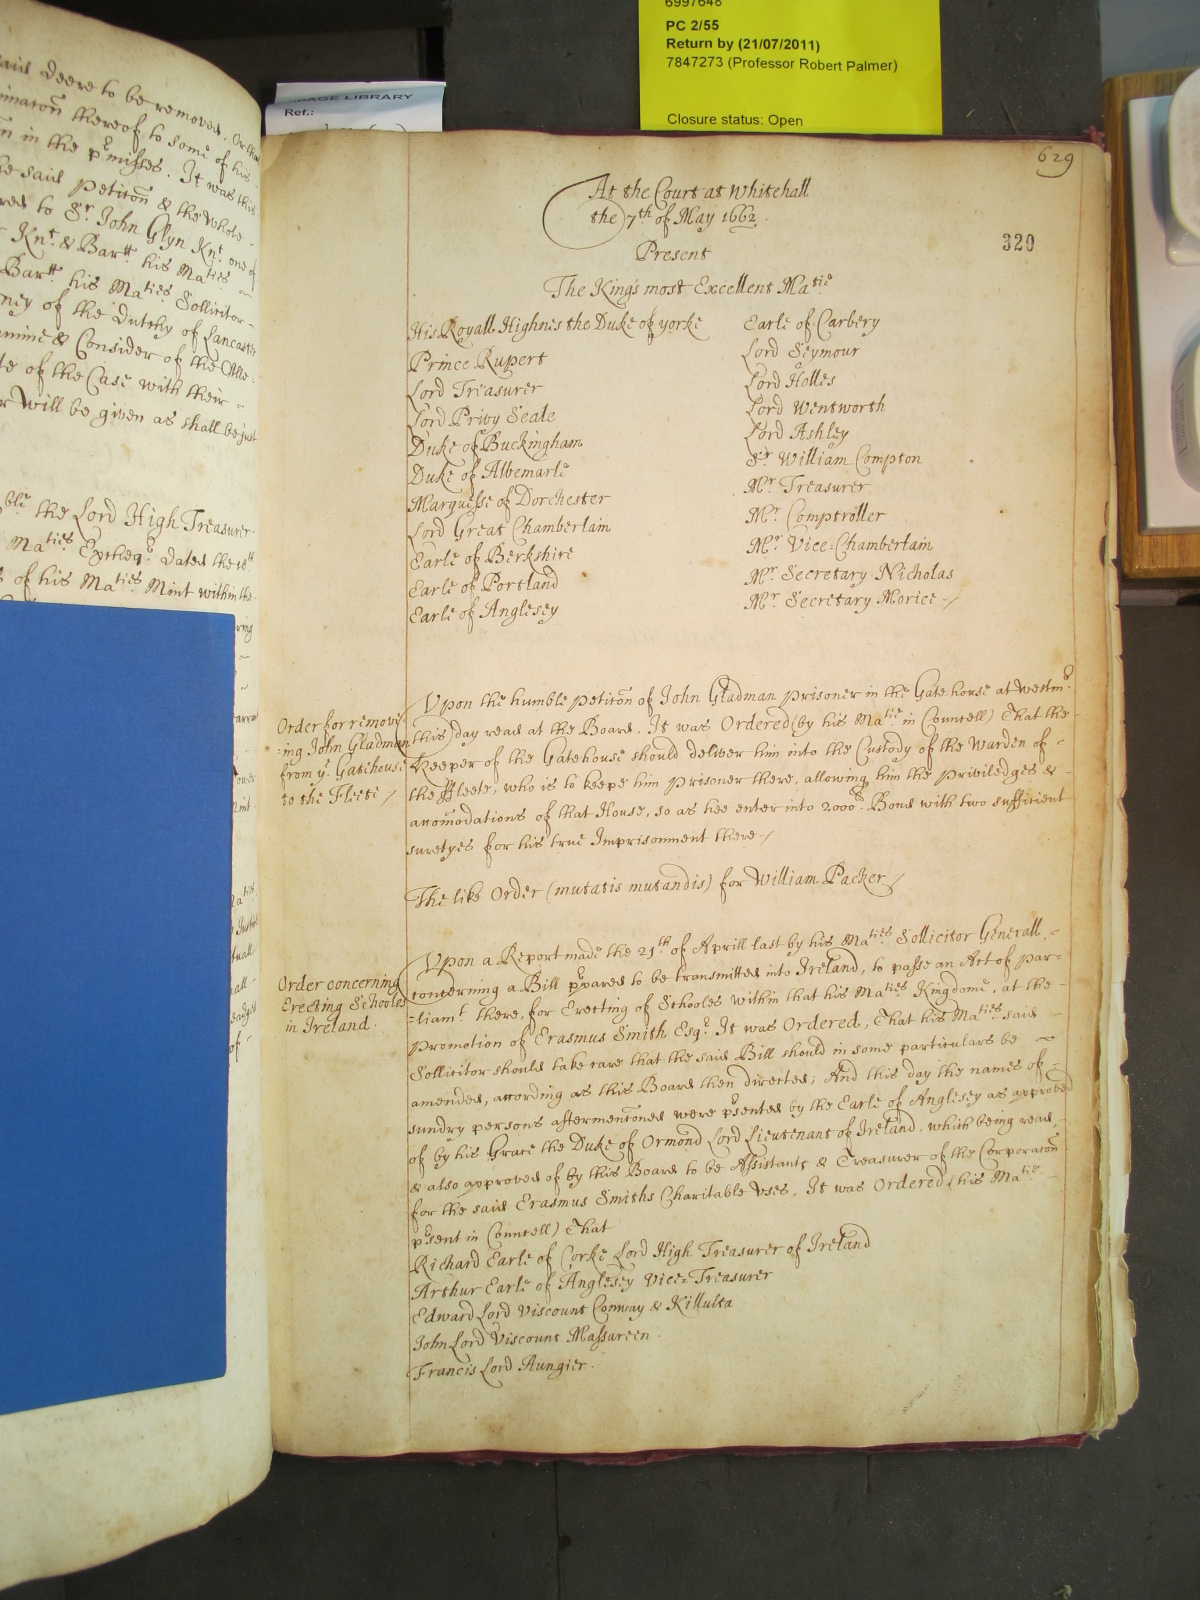 6997648
PC 2/55
Return by (21/07/2011)
7847273 (Professor Robert Palmer)
Closure status: Open
IMAGE LIBRARY
Ref.:
said Deere to be removed, Or
thereof to some of his
n in the p'misses. It was this
he said Petitoñ & the whole
red to Sr. John Glyn Knt. one of
Knt. & Bartt. his Maties
Bartt. his Maties Sollicitor
ney of the Dutchy of Lancaster
amine & Consider of the Alle:
te of the Case with their
r will be given as shall be just
ble the Lord High Treasurer
Maties Excheqr. Dated the
s of his Maties Mint within the
629
320
At the Court at Whitehall
the 7th of May 1662.
Present
The Kings most Excellent Matie
His Royall Highnes the Duke of yorke
Prince Rupert
Lord Treasurer
Lord Privy Seale
Duke of Buckingham
Duke of Albemarle
Marquesse of Dorchester
Lord Great Chamberlain
Earle of Berkshire
Earle of Portland
Earle of Anglesey
Earle of Carbery
Lord Seymour
Lord Holles
Lord Wentworth
Lord Ashley
Sr. William Compton
Mr. Treasurer
Mr. Comptroller
Mr. Vice=Chamberlain
Mr. Secretary Nicholas
Mr. Secretary Morice /
Order for remov
:ing John Gladman
from ye. Gatehouse
to the Fleete /
Upon the humble petitoñ of John Gladman prisoner in the Gatehouse at Westmr.
this day read at the Board. It was Ordered (by his Matie in Councell) That the
Keeper of the Gatehouse should deliver him into the Custody of the Warden of
the ffleete, who is to keepe him prisoner there, allowing him the priviledges &
accom̃odations of that House, so as hee enter into 2000li Bond with two sufficient
suretyes for his true Imprisonment there /
The like Order (mutatis mutandis) for William Packer /
Order concerning
Erecting Schooles
in Ireland.
Upon a Report made the 21th of Aprill last by his Maties Sollicitor Generall,
concerning a Bill p'pared to be transmitted into Ireland, to passe an Act of Par=
=liamt. there, for Erecting of Schooles within that his Maties Kingdome, at the
promotion of Erasmus Smith Esqr. It was Ordered, That his Maties said
Sollicitor should take care that the said Bill should in some particulars be
amended, according as this Board then directed; And this day the names of
sundry persons aftermenc̃oned were p'sented by the Earle of Anglesey as approved
of by his Grace the Duke of Ormond Lord Lieutenant of Ireland, which being read,
& also approved of by this Board to be Assistants & Treasurer of the Corporac̃on
for the said Erasmus Smiths Charitable Vses, It was Ordered (his Matie
p'sent in Councell) That
Richard Earle of Corke Lord High Treasurer of Ireland
Arthur Earle of Anglesey Vice=Treasurer
Edward Lord Viscount Conway & Killulta
John Lord Viscount Massareen.
Francis Lord Aungier.